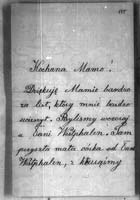 Kochana Mamo!
Dziękuję Mamie bardzo
za list, który mnie bardzo
ucieszył. Byliśmy wczoraj
u Pani Westphalen. Tam
przyszła mała córka od Pani
Westphalen, z którąśmy